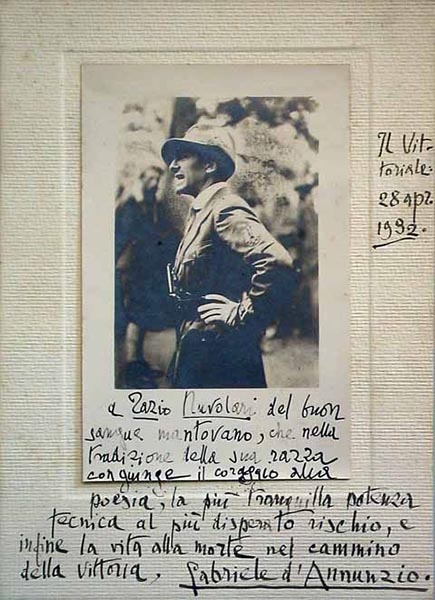 Il Vit-
toriale.
28 apr.
1932.
a Tazio Nuvolari del buon
sangue mantovano, che nella
tradizione della sua razza
congiunge il coraggio alla
poesia, la più tranquilla potenza
tecnica al più disperato rischio, e
infine la vita alla morte nel cammino
della vittoria. Gabriele d'Annunzio.